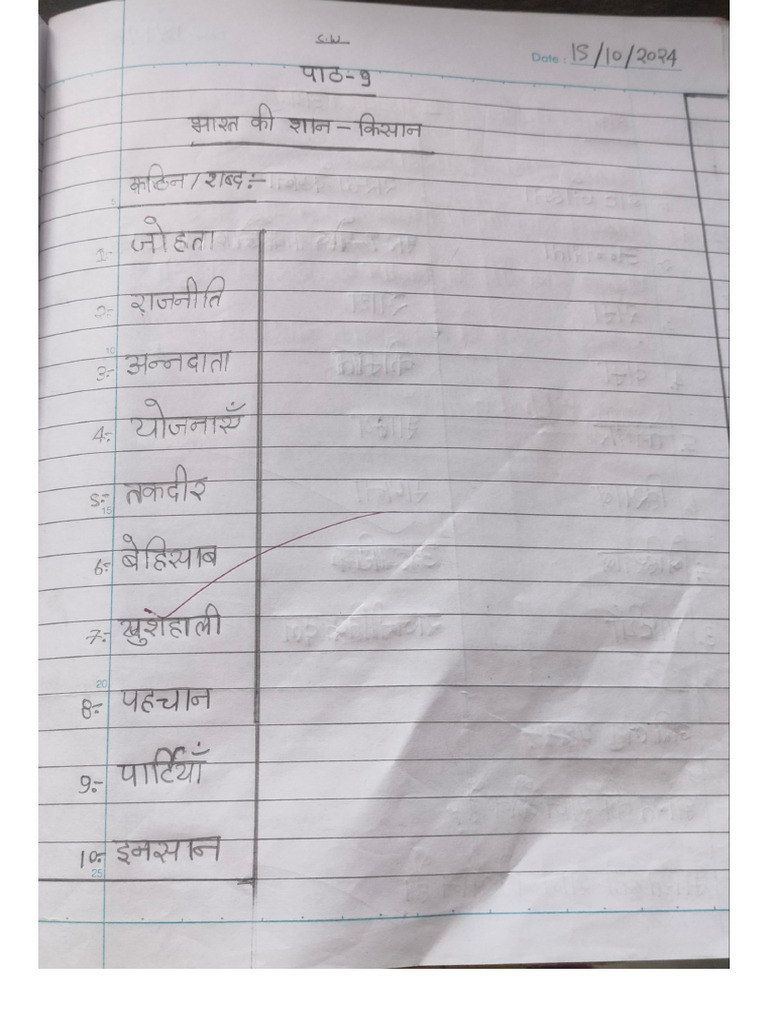 C.W
Date: 15/10/2024
पाठ-9
भारत की शान - किसान
कठिन / शब्द :-
1- जोहता
2- राजनीति
3- अन्नदाता
4- योजनाएँ
5- तकदीर
6- बेहिसाब
7- खुशहाली
8- पहचान
9- पार्टियाँ
10- इनसान